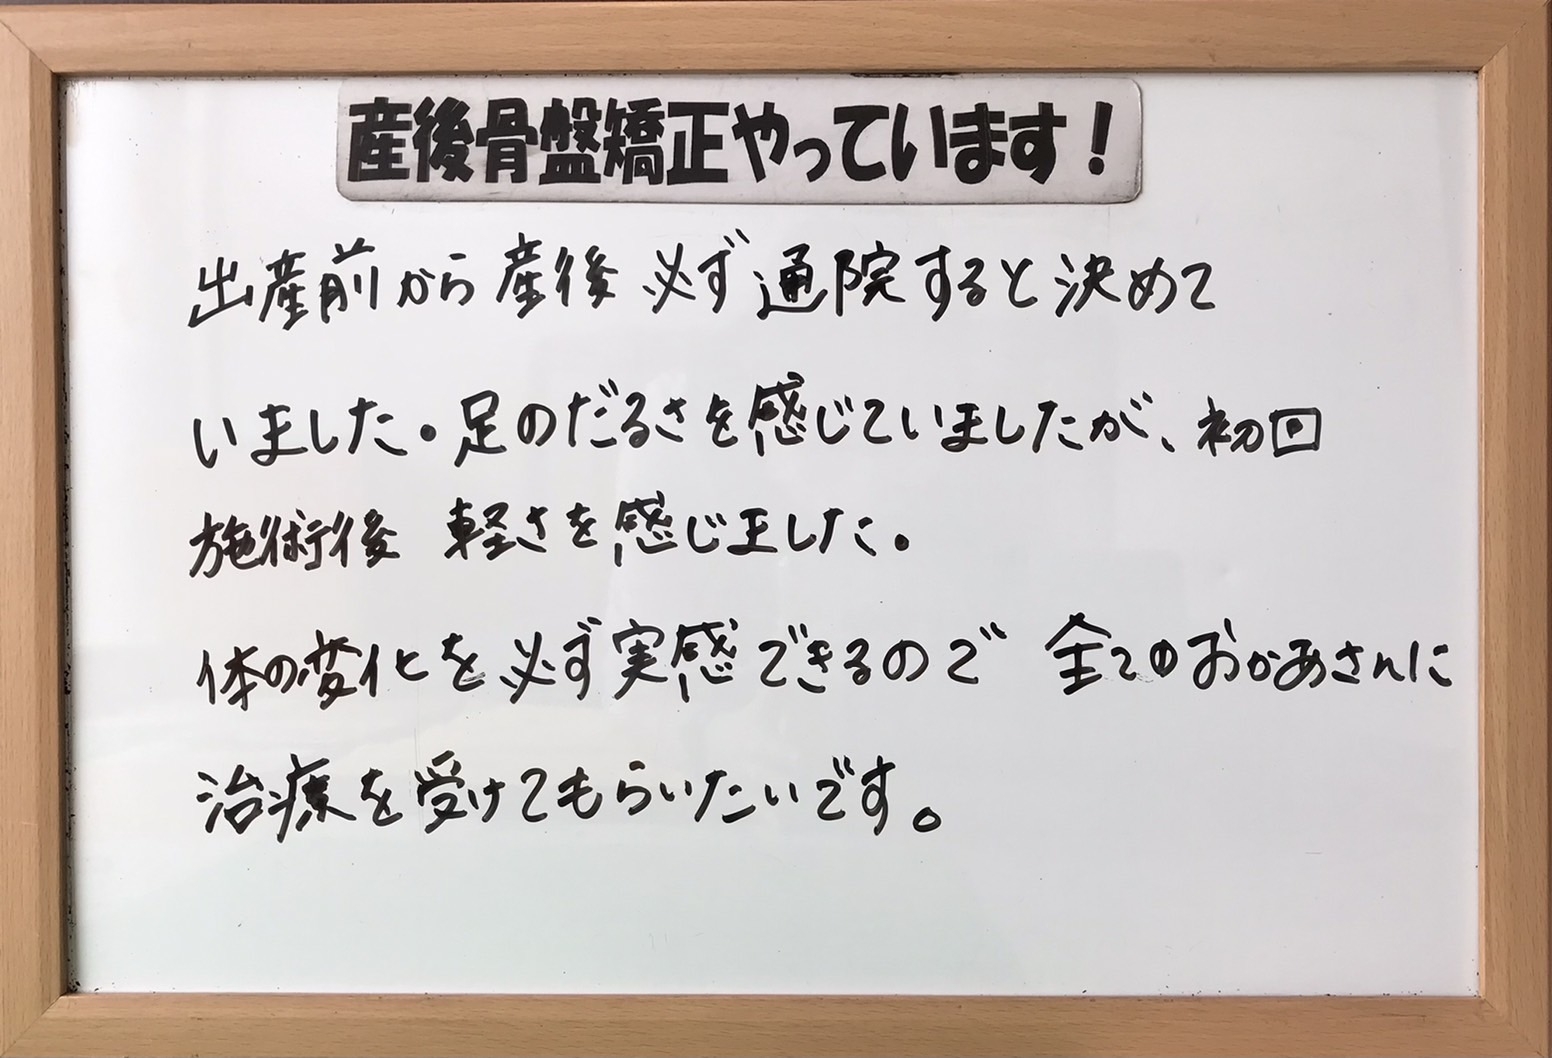 産後骨盤矯正やっています！
出産前から産後 必ず通院すると決めて
いました。足のだるさを感じていましたが、初回
施術後 軽さを感じました。
体の変化を必ず実感できるので 全てのおかあさんに
治療を受けてもらいたいです。